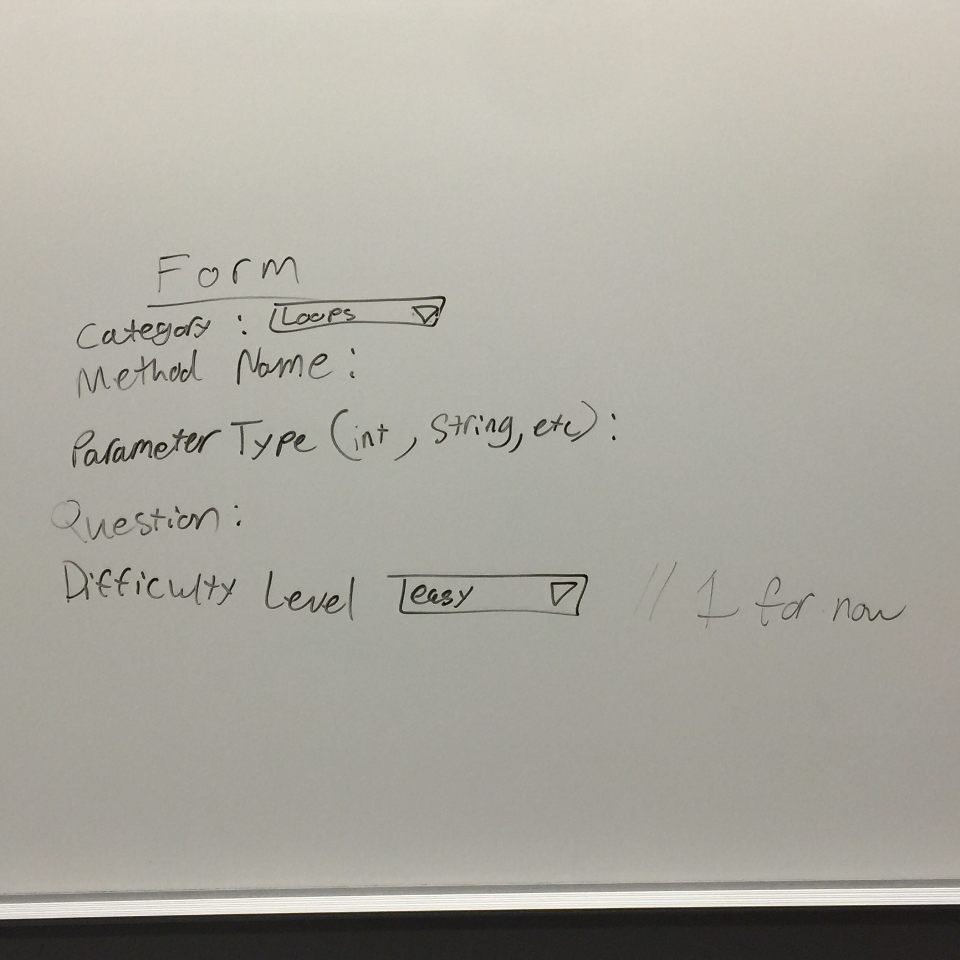 Form
Category : Loops
Method Name :
Parameter Type (int, String, etc) :
Question :
Difficulty Level easy // 1 for now